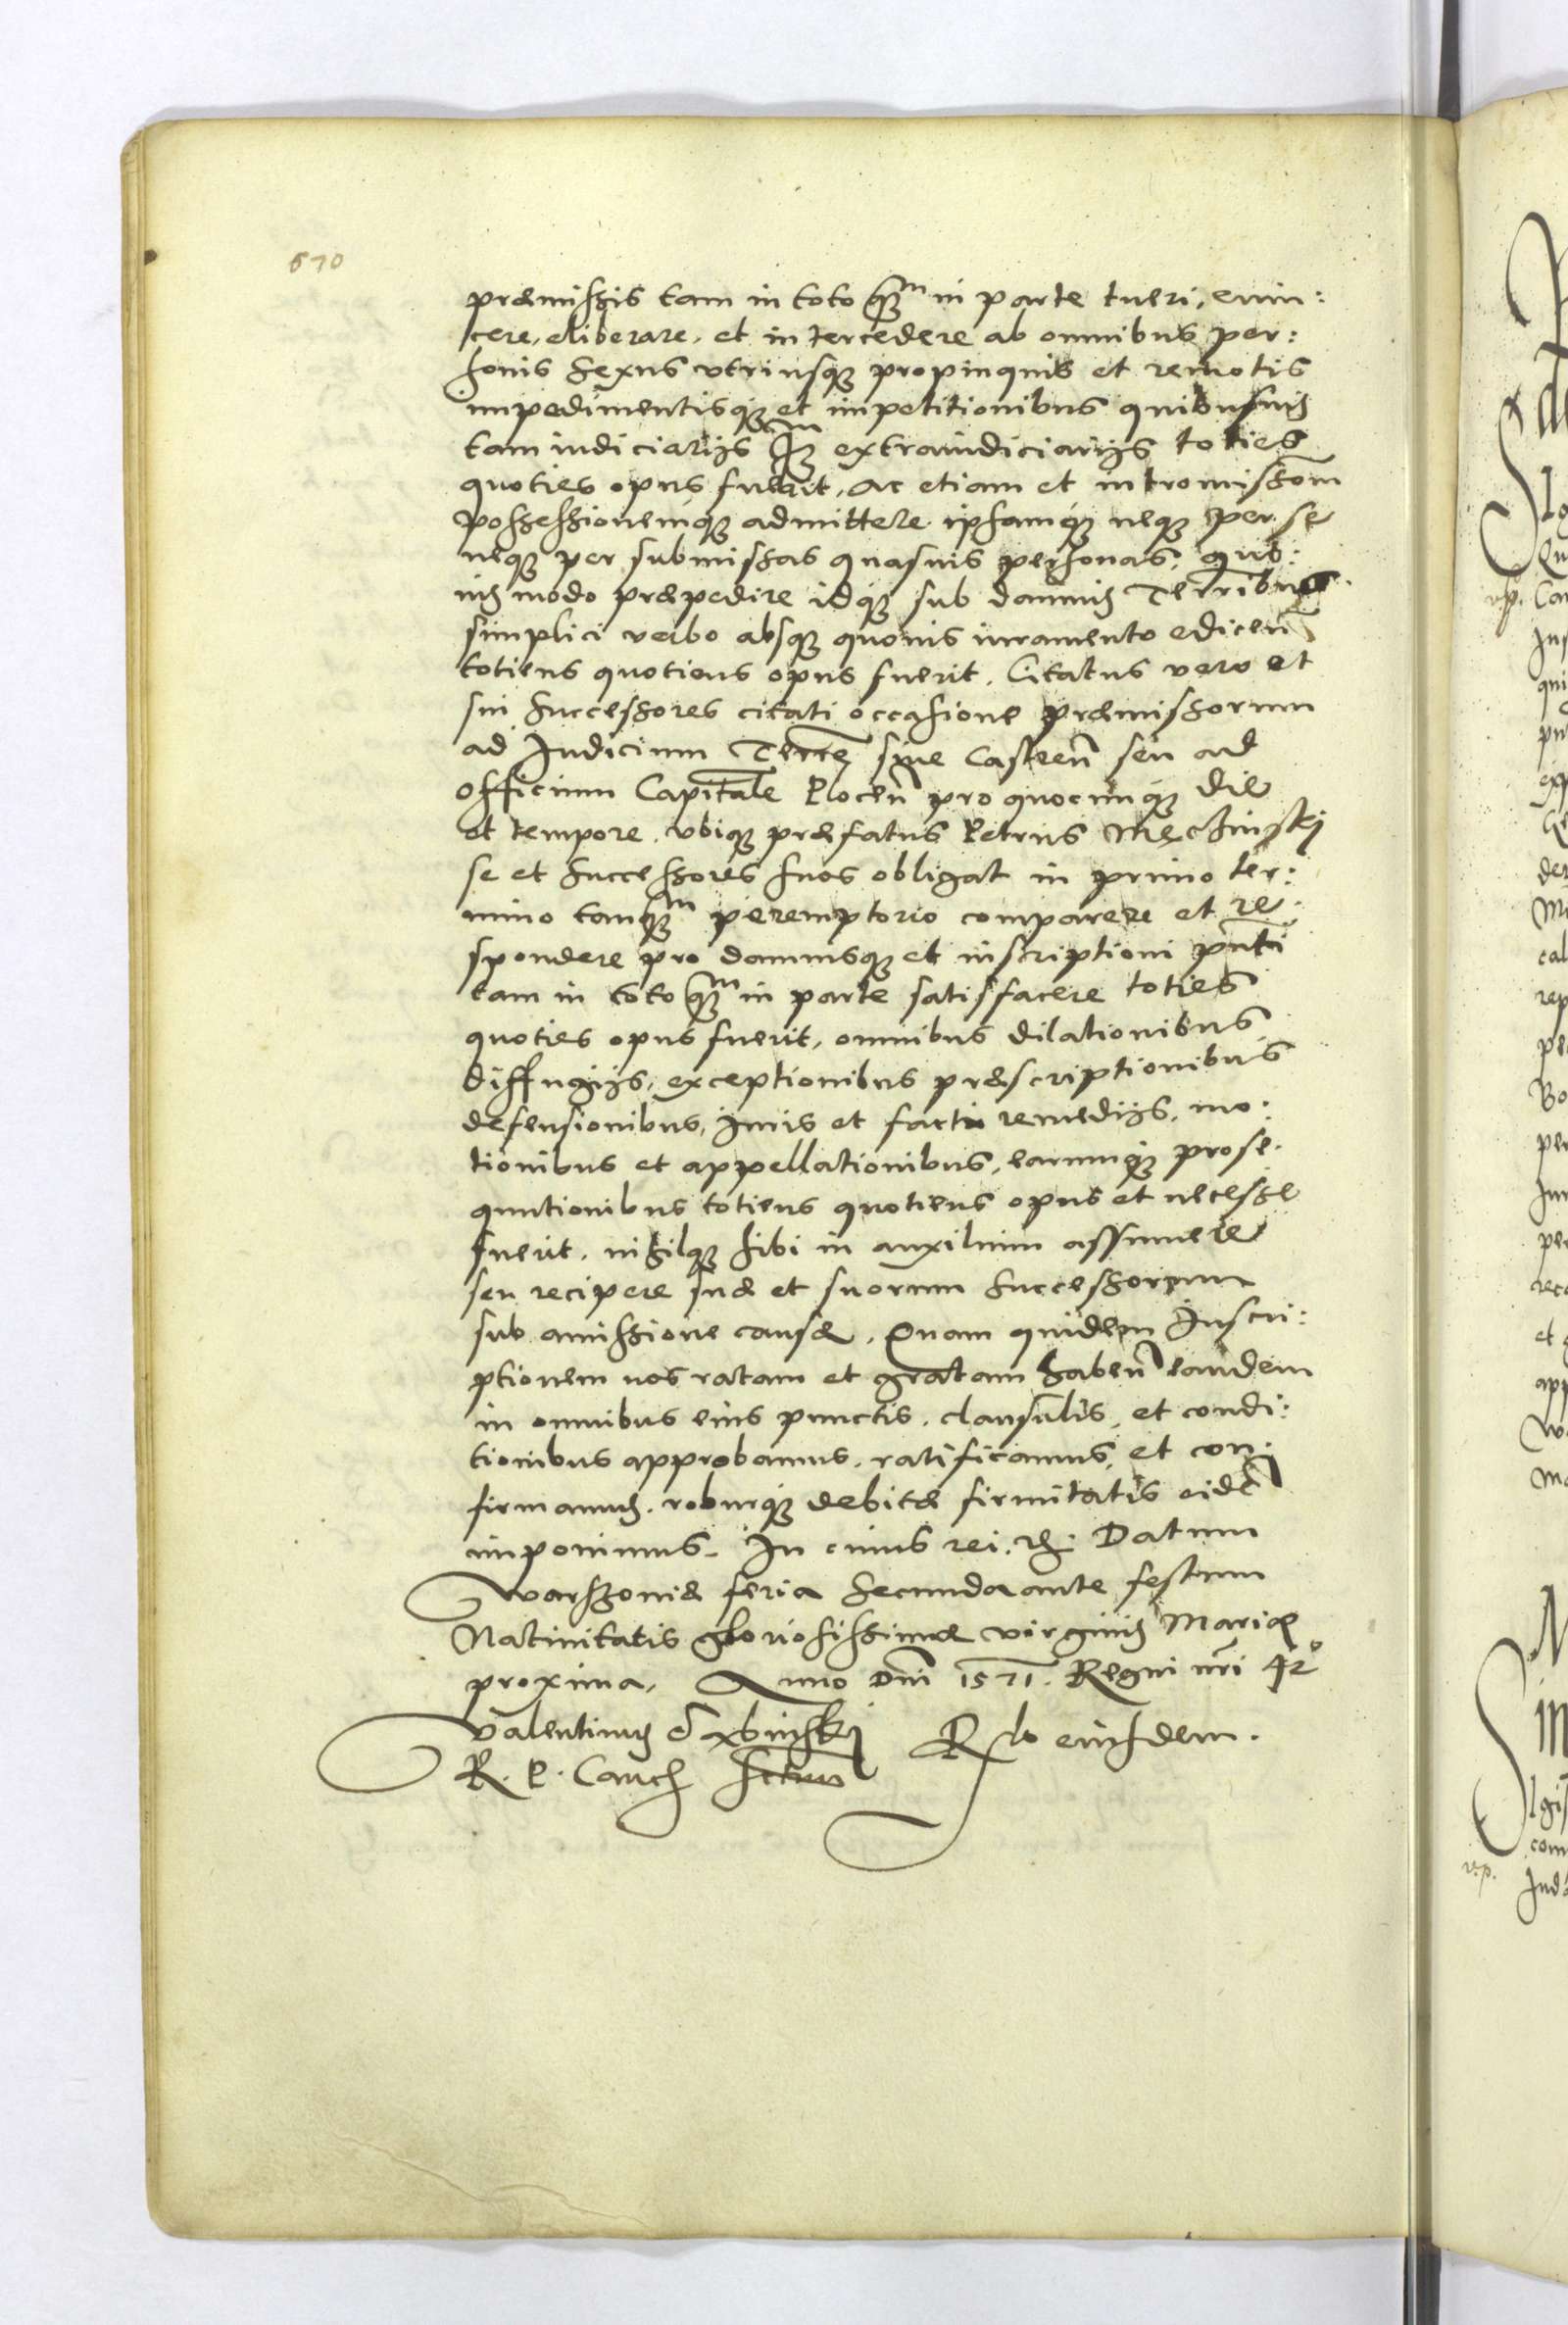 670
præmissis tam in toto q̃ꝫm in parte tueri, euin:
cere, eliberare, et intercedere ab omnibus per:
sonis sexus vtriusqꝫ propinquis et remotis
impedimentisqꝫ et impetitionibus quibusuis
tam iudiciarijs q̃ꝫm extraiudiciarijs toties
quoties opus fuerit, ac etiam et intromissom̃
possessionemqꝫ admittere ipsamqꝫ neqꝫ per se
neqꝫ per submissas quasuis personas, quo:
uis modo præpedire idqꝫ sub damnis Terribus
simplici verbo absqꝫ quouis iuramento edicen̄
totiens quotiens opus fuerit. Citatus vero et
sui successores citati occasione præmissorum
ad Iudicium Terrẽ siue Castren̄ seu ad
officium Capitãle Plocen̄ pro quocunqꝫ die
et tempore. vbiqꝫ præfatus Petrus
se et successores suos obligat in primo ter:
mino tanq̃ꝫm peremptorio comparere et re:
spondere pro damnisqꝫ et inscriptioni pñti
tam in toto q̃ꝫm in parte satisfacere toties
quoties opus fuerit, omnibus dilationibus
diffugijs, exceptionibus præscriptionibus
defensionibus, iuris et facti remedijs, mo:
tionibus et appellationibus, earumqꝫ prose:
quutionibus totiens quotiens opus et necesse
fuerit. nihilqꝫ sibi in auxilium assumere
seu recipere suæ et suorum successorum
sub amissione causæ. Quam quidem Inscri:
ptionem nos ratam et gratam haben̄ eandem
in omnibus eius punctis, clausulis, et condi:
tionibus approbamus, ratificamus, et con:
firmamus. roburqꝫ debitæ firmitatis eidẽ
imponimus. In cuius rei. &c: Datum
Warszouiæ feria secunda ante festum
Natiuitatis gloriosissimæ virginis Mariæ
proxima, Anno Dñi 1571. Regni nr̃i 42°
Valentinus Dąbinskj Rlo eiusdem.
R. P. Canc̄